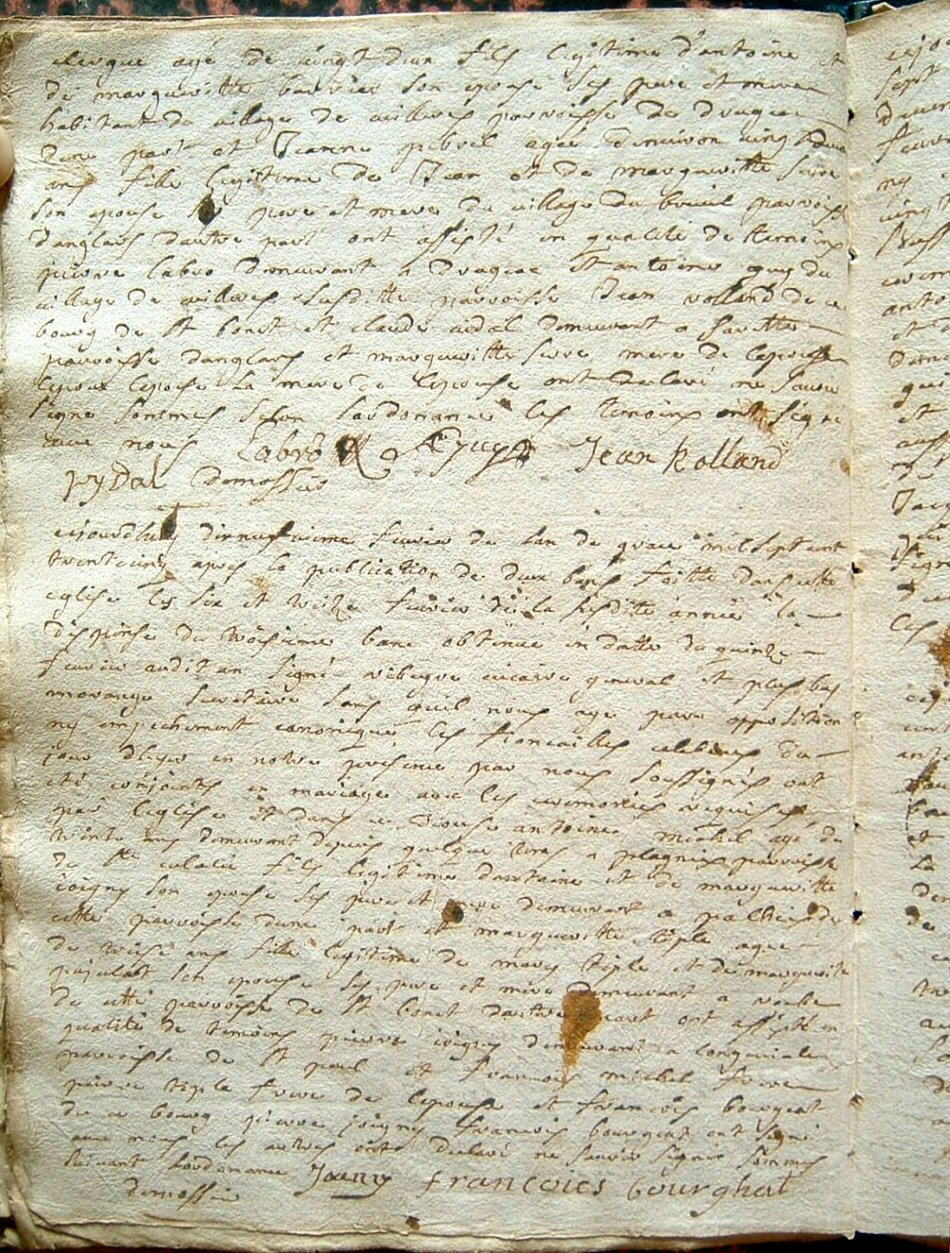 clerque agé de vingt deux fils legitime d'antoine et
de margueritte barrier son epouse ses pere et mere
habitant du village de villeves parroisse de drugeac
dune part et Jeanne agée d'environ vingt deux
ans fille legitime de Jean et de marguerritte serre
son epouse ses pere et mere du village du breuil parroisse
d'anglars d'autre part ont assisté en qualité de temoins
pierre labro demeurant a drugeac et antoine guy du
village de villeves susditte parroisse Jean rolland de ce
bourg de st bonet et claude vidal demeurant a
parroisse d'anglars et marguerritte serre mere de l'epouse
l'epoux l'epouse la mere de l'epouse ont declaré ne savoir
signe sommes selon lordonance les temoins ont signé
avec nous Labro AGuy Jean Rolland
vydal demossier
cejourdhuy dixneufvieme fevrier de lan de grace mil sept cent
trente cinq apres la publication de deux bans faitte dans cette
eglise les six et treize fevrier de la susditte année la
dispense du troisieme banc obtenue en datte du quinze
fevrier audit an signé ribeyre vicaire general et plus bas
morange secretaire sans quil nous aye paru opposition
ny empechement canonique les fiancailles celebrees du
jour dhier en notre presence par nous soussignés ont
été conjoints en mariage avec les ceremonies requises
par leglise et dans ce diocese antoine michel agé de
trente ans demeurant depuis quelque tems a plagnes parroisse
de ste eulalie fils legitime dantoine et de marguerritte
joigny son epouse ses pere et mere demeurant a
cette parroisse dune part et marguerritte tiple agée
de treise ans fille legitime de marc tiple et de marguerite
pujolat son epouse ses pere et mere demeurant a
de cette parroisse de st bonet dautre part ont assisté en
qualité de temoins pierre joigny demeurant a longevialle
parroisse de st paul et francois michel frere
pierre tiple frere de lepouse et francois bourgeat
de ce bourg pierre joigny francois bourgeat ont signé
avec nous les autres ont declaré ne savoir signer sommés
suivant lordonance Joany francoies bourghat
demossier